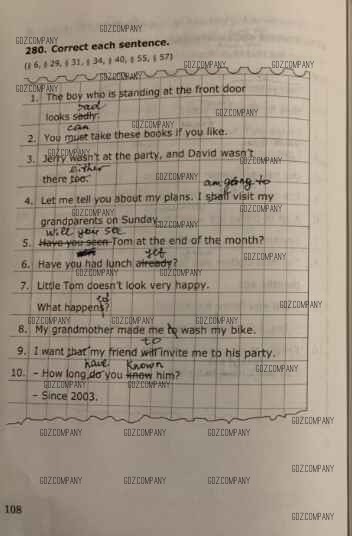 GDZ.COMPANY
280. Correct each sentence.
GDZ.COMPANY
(§ 6, § 29, § 31, § 34, § 40, § 55, § 57)
GDZ.COMPANY GDZ.COMPANY
GDZ.COMPANY
1. The boy who is standing at the front door
sad
looks sadly. GDZ.COMPANY
can GDZ.COMPANY
2. You must take these books if you like.
GDZ.COMPANY
3. Jerry wasn't at the party, and David wasn't
either GDZ.COMPANY
there too. GDZ.COMPANY
am going to
4. Let me tell you about my plans. I shall visit my
GDZ.COMPANY GDZ.COMPANY
grandparents on Sunday.
GDZ.COMPANY
will you see
5. Have you seen Tom at the end of the month?
yet
6. Have you had lunch already?
GDZ.COMPANY GDZ.COMPANY
7. Little Tom doesn't look very happy.
ed
What happens? GDZ.COMPANY
GDZ.COMPANY GDZ.COMPANY GDZ.COMPANY
8. My grandmother made me to wash my bike.
to
9. I want that my friend will invite me to his party.
have known
10. – How long do you know him? GDZ.COMPANY
GDZ.COMPANY GDZ.COMPANY
– Since 2003.
GDZ.COMPANY
GDZ.COMPANY GDZ.COMPANY GDZ.COMPANY
GDZ.COMPANY
GDZ.COMPANY GDZ.COMPANY GDZ.COMPANY GDZ.COMPANY
108
GDZ.COMPANY